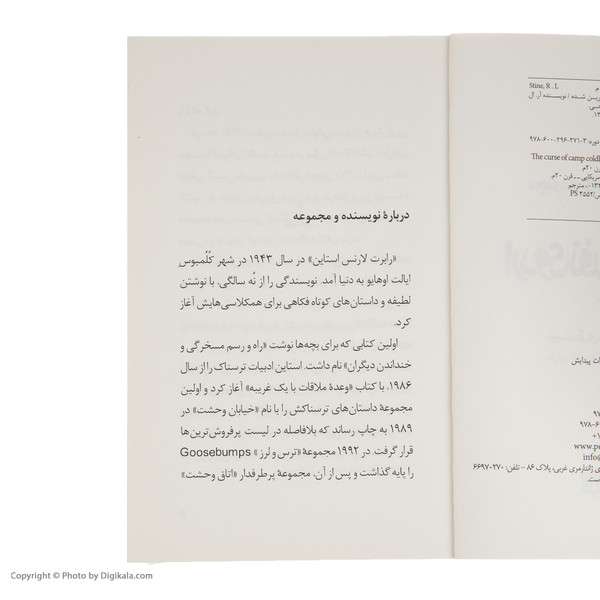 Stine, R . L
The curse of camp coldl
PS ۳۵۵۲
ات پیدایش
www.pe
info@
ژاندارمری غربی، پلاک ۸۶ – تلفن: ۶۶۹۷۰۲۷۰
است.
دربارهٔ نویسنده و مجموعه
«رابرت لارنس استاین» در سال ۱۹۴۳ در شهر کلُمبوسِ
ایالت اوهایو به دنیا آمد. نویسندگی را از نُه سالگی، با نوشتن
لطیفه و داستان‌های کوتاه فکاهی برای همکلاسی‌هایش آغاز
کرد.
اولین کتابی که برای بچه‌ها نوشت «راه و رسم مسخرگی و
خنداندن دیگران» نام داشت. استاین ادبیات ترسناک را از سال
۱۹۸۶، با کتاب «وعدهٔ ملاقات با یک غریبه» آغاز کرد و اولین
مجموعهٔ داستان‌های ترسناکش را با نام «خیابان وحشت» در
۱۹۸۹ به چاپ رساند که بلافاصله در لیست پرفروش‌ترین‌ها
قرار گرفت. در ۱۹۹۲ مجموعهٔ «ترس و لرز» Goosebumps
را پایه گذاشت و پس از آن، مجموعهٔ پرطرفدار «اتاق وحشت»
Copyright © Photo by Digikala.com